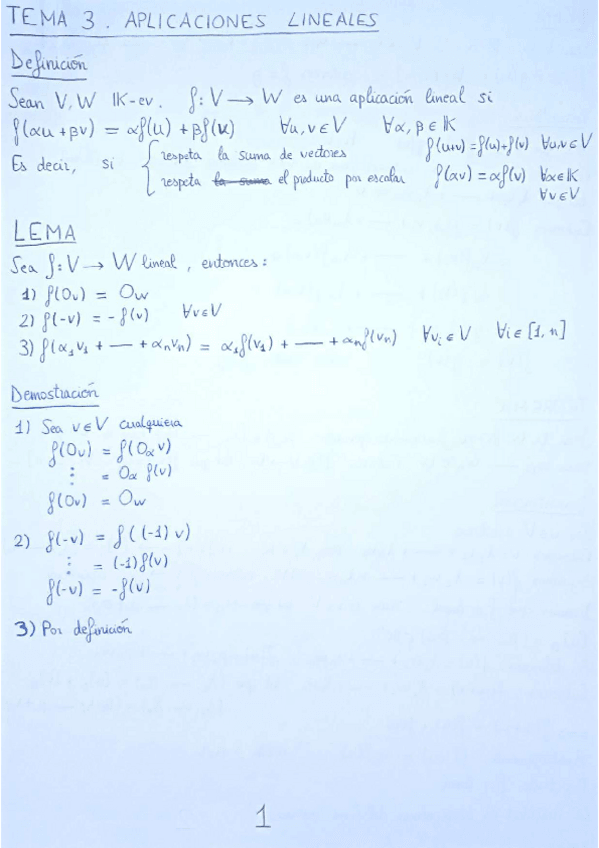 TEMA 3. APLICACIONES LINEALES
Definición
Sean V, W K-ev. f: V → W es una aplicación lineal si
f(αu + βv) = αf(u) + βf(v) ∀u, v ∈ V ∀α, β ∈ K
Es decir, si { respeta la suma de vectores f(u+v) = f(u)+f(v) ∀u,v ∈ V
respeta la suma el producto por escalar f(αv) = αf(v) ∀α ∈ K
∀v ∈ V
LEMA
Sea f: V → W lineal, entonces:
1) f(0v) = 0w
2) f(-v) = -f(v) ∀v ∈ V
3) f(α₁v₁ + — + αₙvₙ) = α₁f(v₁) + — + αₙf(vₙ) ∀vᵢ ∈ V ∀i ∈ [1, n]
Demostración
1) Sea v ∈ V cualquiera
f(0v) = f(0α v)
⋮ = 0α f(v)
f(0v) = 0w
2) f(-v) = f((-1) v)
⋮ = (-1)f(v)
f(-v) = -f(v)
3) Por definición
1